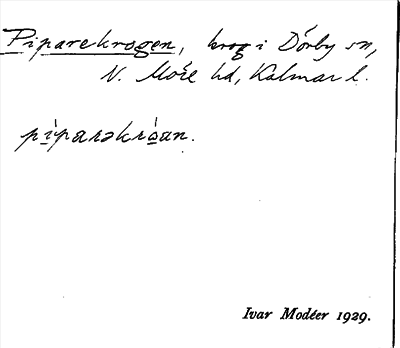 Piparekrogen, krog i Dörby sn,
N. Möre hd, Kalmar l.
pìparəkróan.
Ivar Modéer 1929.